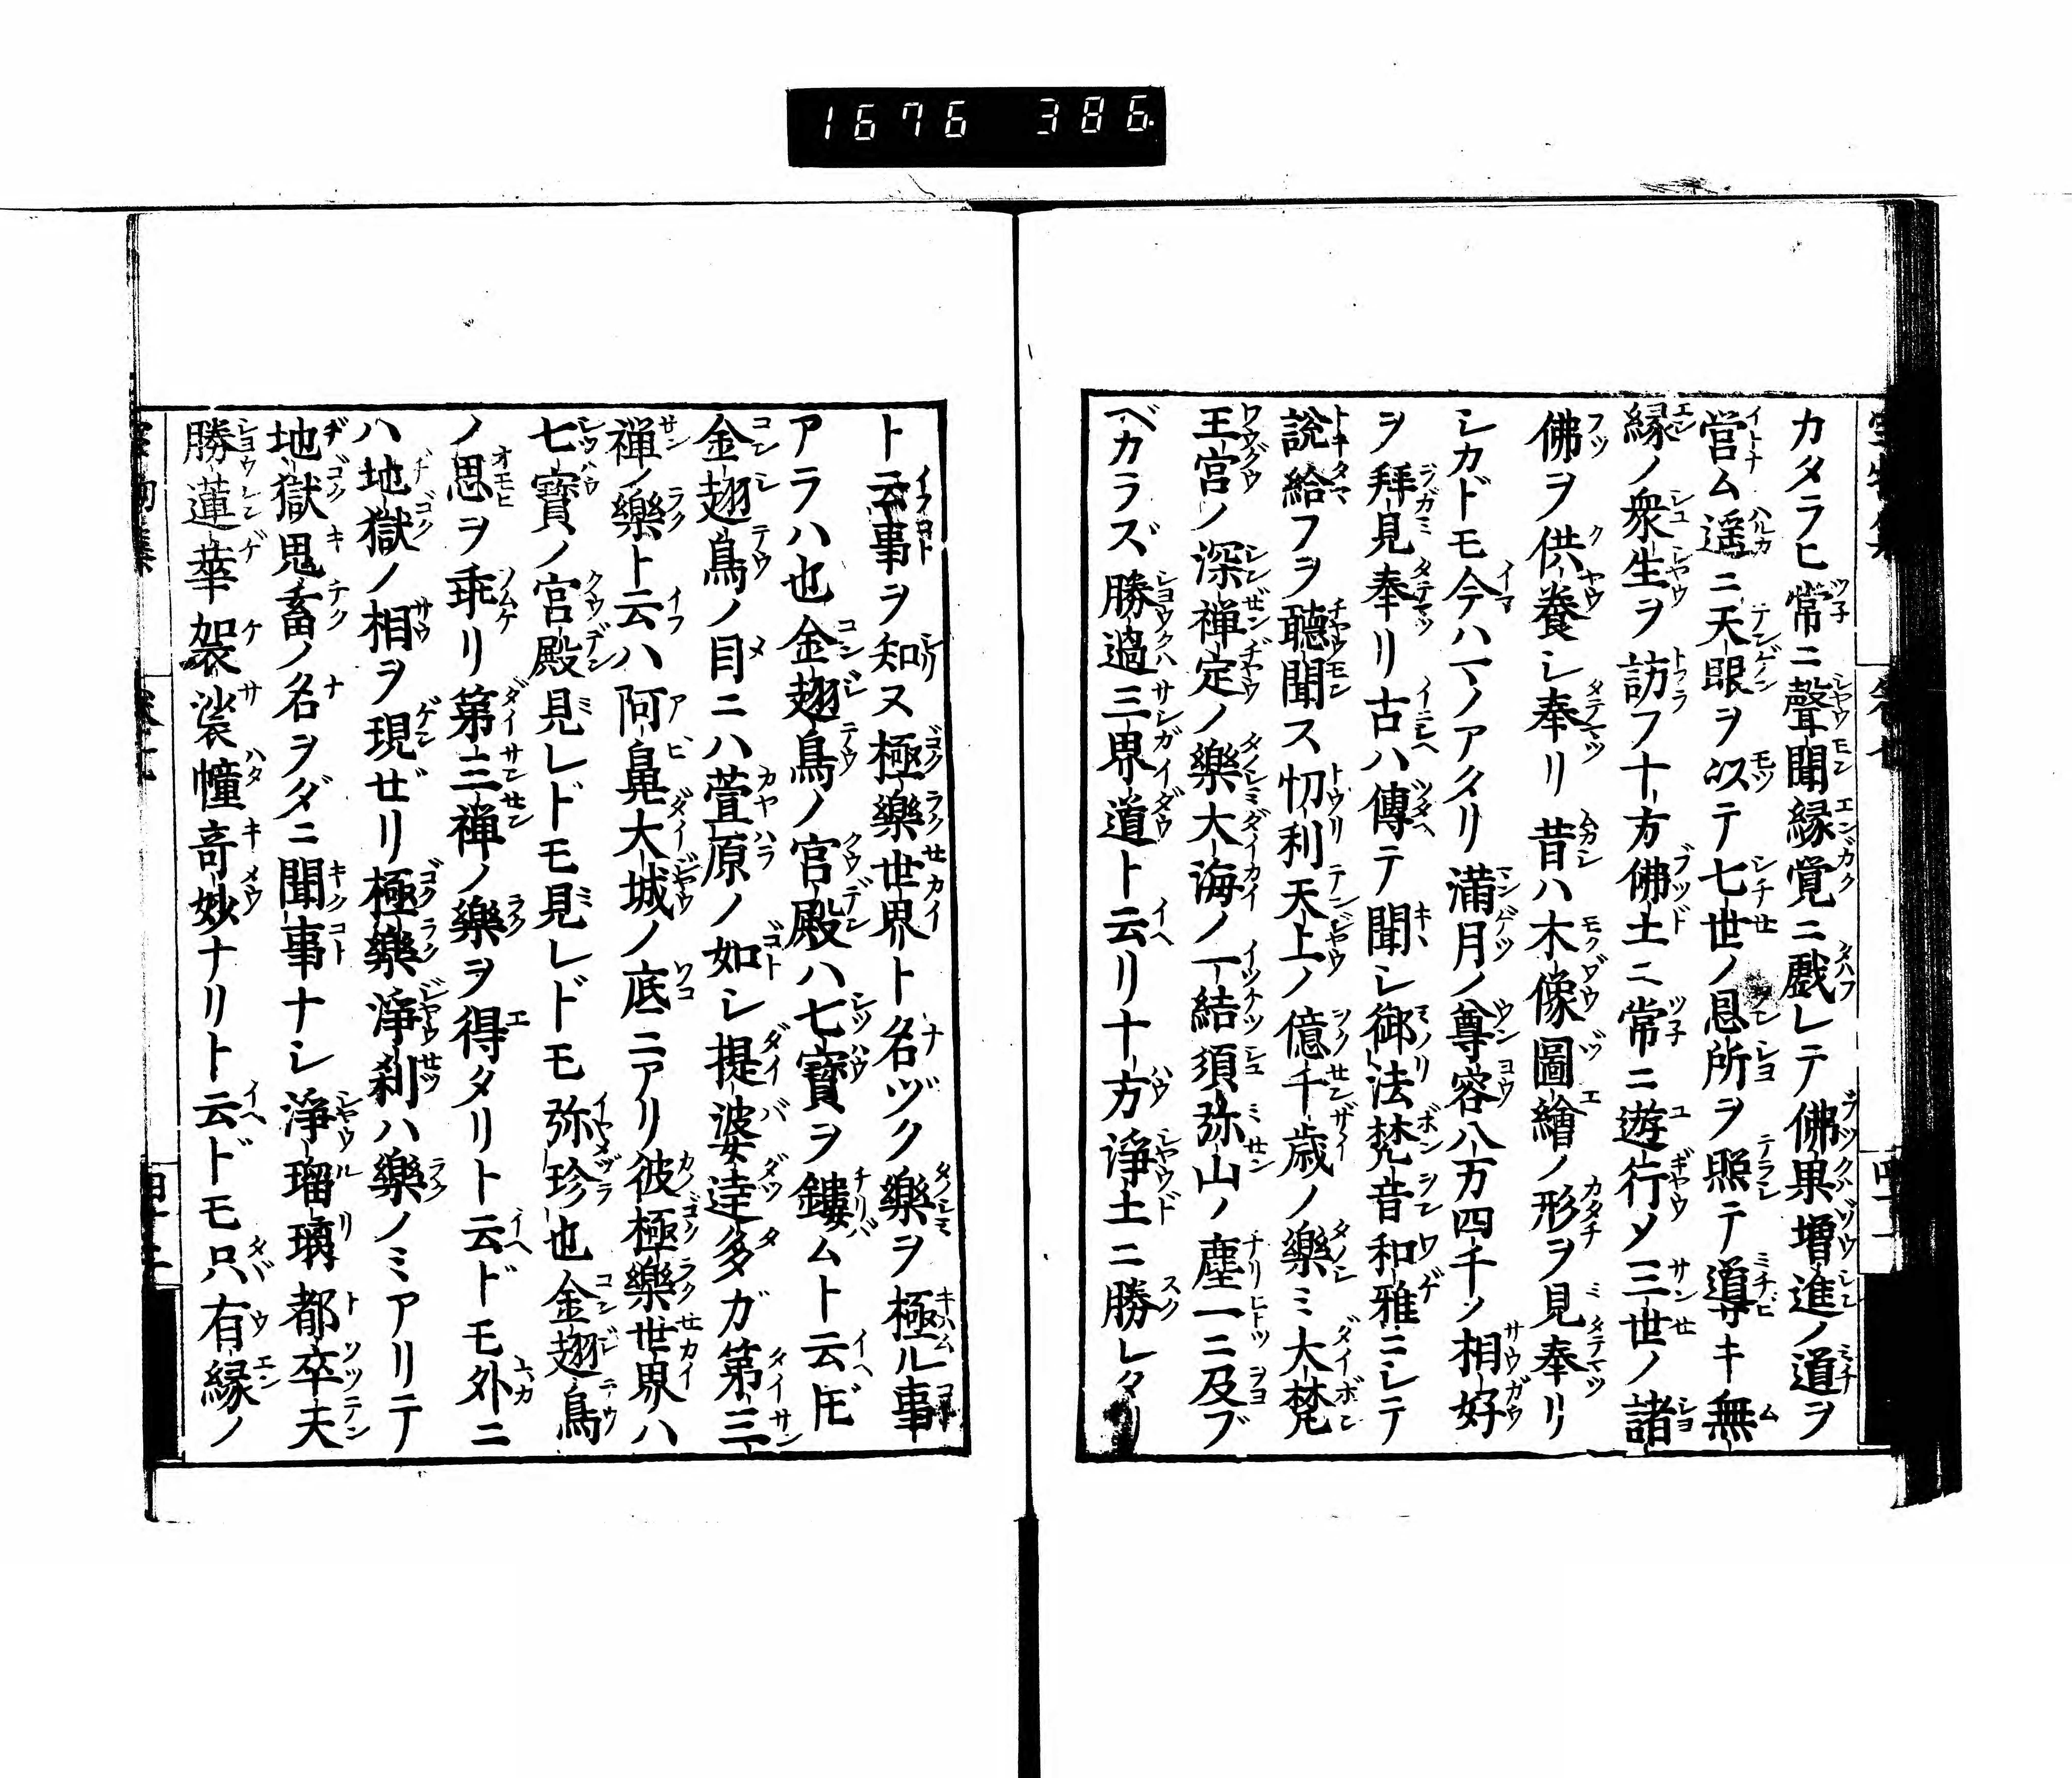 1676 386
カタラヒ常ニ聲聞縁覚ニ戯レテ佛果増進ノ道ヲ
営ム遥ニ天眼ヲ以テ七世ノ恩所ヲ照テ導キ無
縁ノ衆生ヲ訪フ十方佛土ニ常ニ遊行メ三世ノ諸
佛ヲ供養シ奉リ昔ハ木像圖繪ノ形ヲ見奉リ
シカドモ今ハマノアタリ満月ノ尊容八万四千ノ相好
ヲ拜見奉リ古ハ傳テ聞シ御法梵音和雅ニシテ
說給フヲ聽聞ス忉利天上ノ億千歳ノ樂ミ大梵
王宮ノ深禅定ノ樂大海ノ一結須弥山ノ塵一ニ及ブ
ベカラズ勝過三界道ト云リ十方淨土ニ勝レタリ
ト云事ヲ知ヌ極樂世界ト名ヅク樂ヲ極ル事
アラハ也金翅鳥ノ宮殿ハ七寶ヲ鏤ムト云ドモ
金翅鳥ノ目ニハ萱原ノ如シ提婆達多ガ第三
禅ノ樂ト云ハ阿鼻大城ノ底ニアリ彼極樂世界ハ
七寶ノ宮殿見レドモ見レドモ弥珍也金翅鳥
ノ思ヲ乖リ第三禅ノ樂ヲ得タリト云ドモ外ニ
ハ地獄ノ相ヲ現ゼリ極樂淨刹ハ樂ノミアリテ
地獄鬼畜ノ名ヲダニ聞事ナシ淨瑠璃都卒天
勝蓮華袈裟幢奇妙ナリト云ドモ只有縁ノ